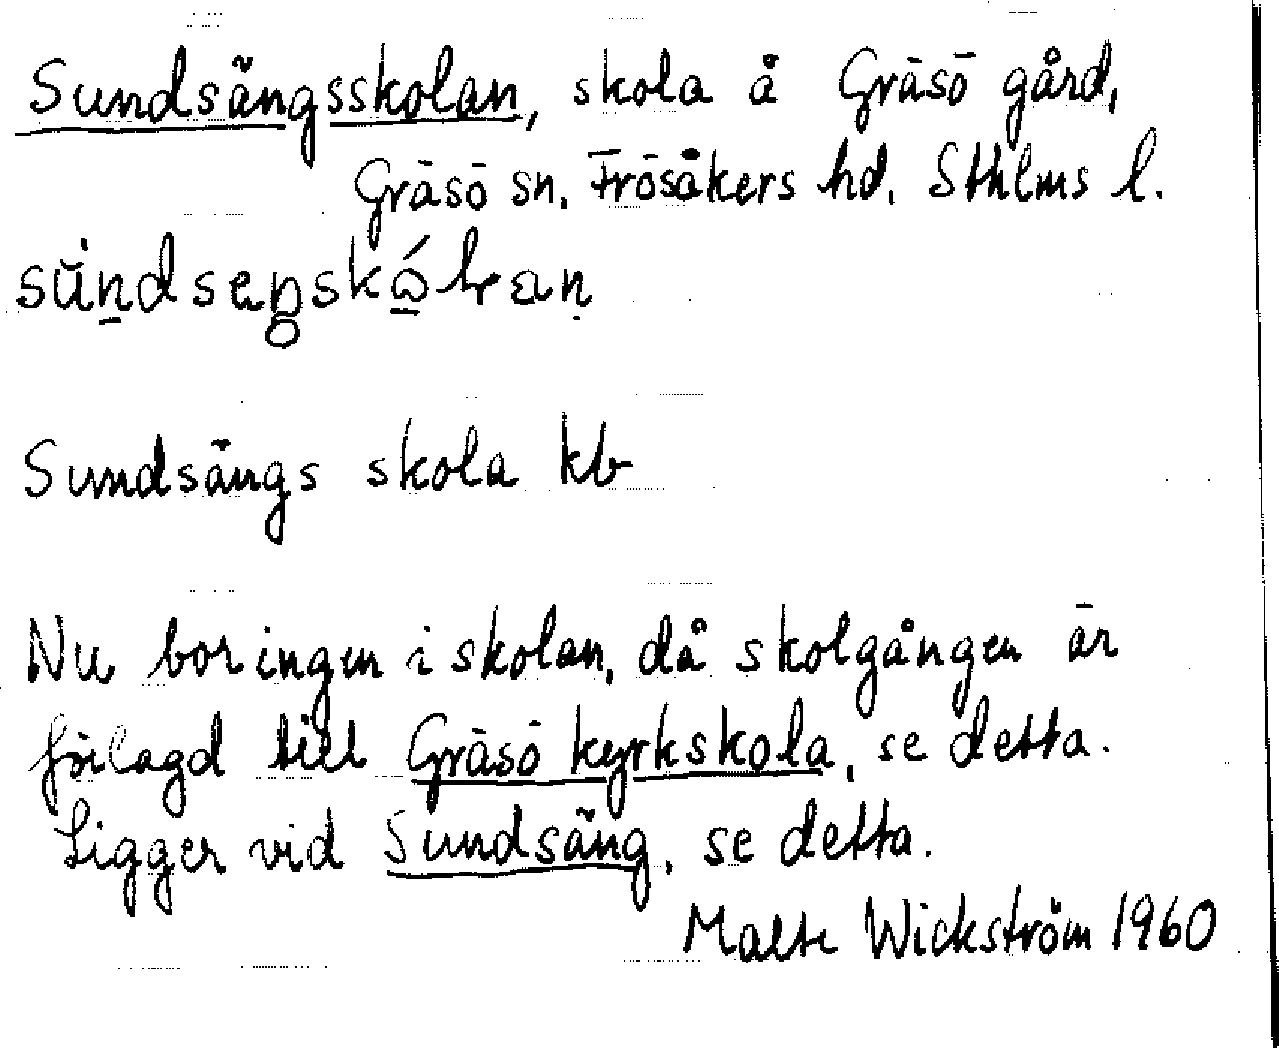 Sundsängsskolan, skola å Gräsö gård,
Gräsö sn. Frösåkers hd. Sthlms l.
Sundsängs skola kb
Nu bor ingen i skolan, då skolgången är
förlagd till Gräsö kyrkskola, se detta.
Ligger vid Sundsäng, se detta.
Malte Wickström 1960